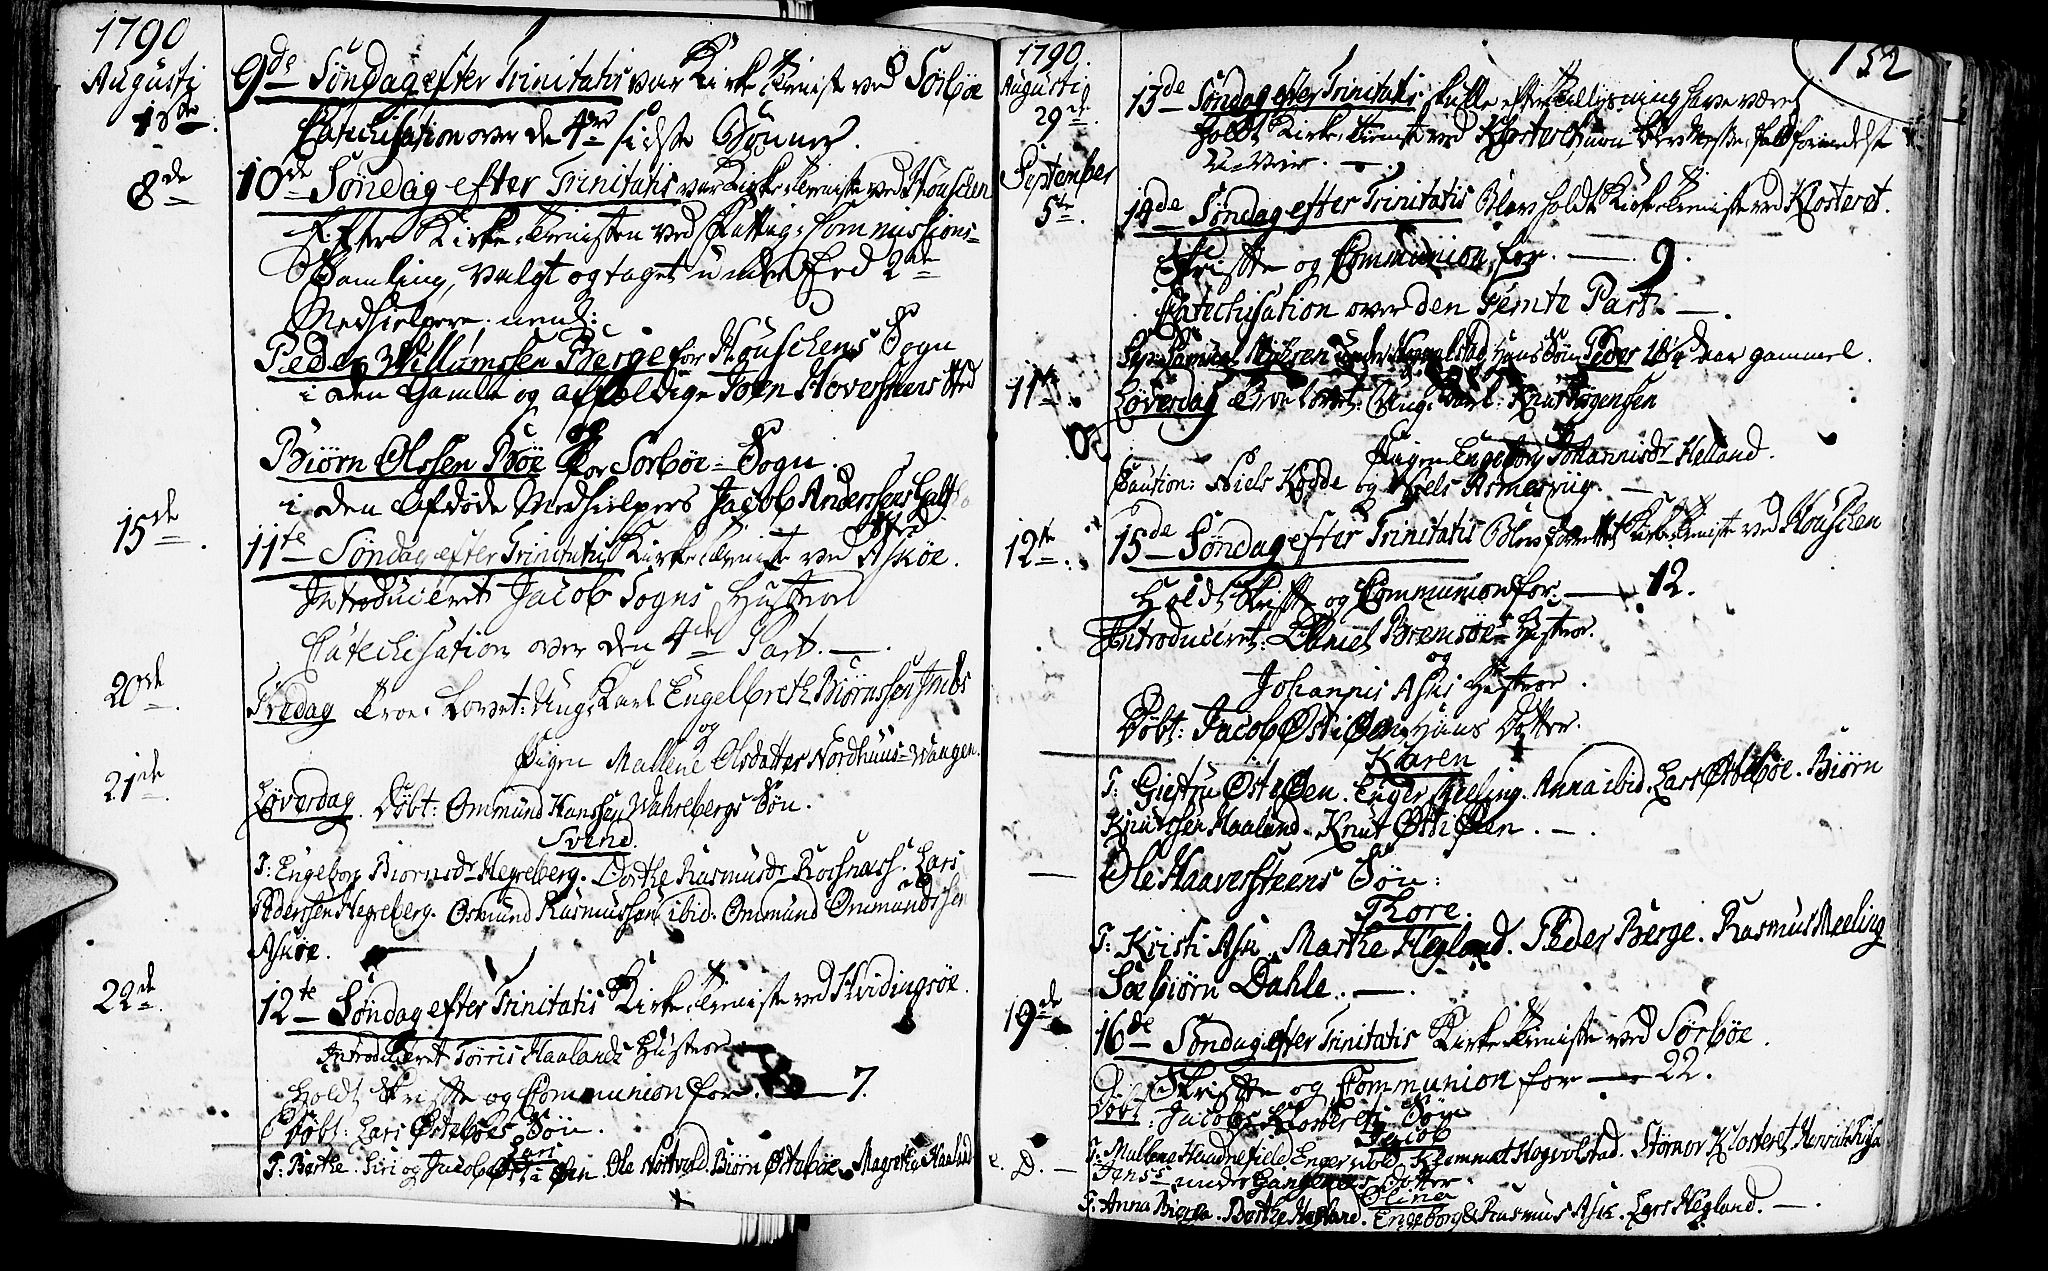 1790
Augusti
1ste.
9de Søndag efter Trinitatis var Kirke Tieniste ved Sørbøe
Catechisation over de 4re sidste Bønner.
8de
10de Søndag efter Trinitatis var Kirke Tieniste ved Houschen
Efter Kirke Tienisten ved Fattig-Commissions-
Samling, valgt og taget under Eed 2de
Medhielpere nemlig:
Peder Willumssen Berge for Houschens Sogn
i den Gamle og affældige Toer Hoversteens Sted
Biørn Olssen Bøe for Sorbøe-Sogn.
i den Afdøde Medhielpers Jacob Anderssens Galt
Sted.
15de.
11te Søndag efter Trinitatis Kirke Tieniste ved Askøe.
Introduceret Jacob Sogns Hustroe
Catechisation over den 4de Part. —.
20de.
Fredag Troe-Lovet: Ung-Karl Engelbreth Biørnssen
og
Pigen Mallene Olsdatter Nordhuus-Waagen.
21de.
Løverdag. Døbt: Ommund Hanssen Wahrebergs Søn.
Svend.
T: Engeborg Biørnsdr Hegreberg. Dorthe Rasmusdr. Lars
Pederssen Hegreberg. Osmund Rasmussen ibid. Ommund Ommundssen
Askøe.
22de.
12te Søndag efter Trinitatis Kirke Tieniste ved Hvidingsøe.
Introduceret Torris Haalands Hustroe
Holdt Skrifte og Communion for. — 7.
Døbt: Lars Østebøes Søn.
Lars
T: Barthe. Siri og Jacob Øst i Øen. Ole Nortvold. Biørn Østebøe. Magrethe Haaland
152
1790.
Augusti
29de.
13de Søndag efter Trinitatis skulle efter Tillysning have været
holdt Kirke Tieniste ved Klosteret, men blev Messefald formedelst
U-Veir. —.
September
5te.
14de Søndag efter Trinitatis Blev holdt Kirke Tieniste ved Klosteret.
Skrifte og Communion for. — 9.
Catechisation over den Femte Part. —.
Hans Søn Peder aar gammel.
11te.
Løverdag Troe lovet: Ung-Karl: Knut
Pigen Engeborg Johannisdr Helland.
Caution: Niels Kodde og Niels
12te.
15de Søndag efter Trinitatis Blev forrettet Kirke Tieniste ved Houschen
Holdt Skrifte og Communion for. — 12.
Introduceret: Daniel Bremsøe Hustroe.
og
Johannis Asks Hustroe.
Døbt: Jacob Øst i Øen Hans Datter.
Karen
T: Giertru Øst i Øen. Enger Meeling. Anna ibid. Lars Østebøe. Biørn
Knutssen Haaland. Knut Øst i Øen. —.
Ole Haaversteens Søn:
Thore.
T: Kristi Ask. Marthe Hegland. Peder Berge. Rasmus Meeling
Sæbiørn Dahle. —.
19de
16de Søndag efter Trinitatis Kirke Tieniste ved Sørbøe.
Skrifte og Communion for — 22.
Døbt: Jacob Klosterets Søn
Jacob
T: Mallene Klemmet Hogvolstad. Klosteret
Jens under Datter
Olina
T: Anna Barthe Hegland. Engeborg & Rasmus Ask. Lars Hegland. —.